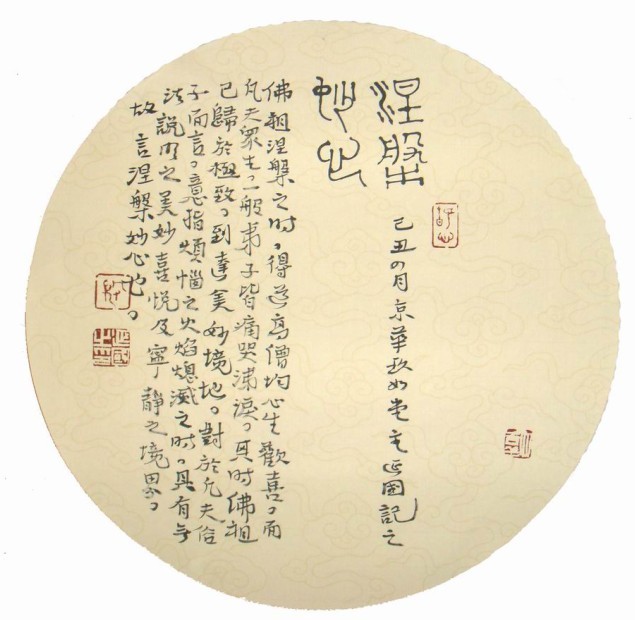 涅槃
妙心
己丑四月京華玖如堂主正国記之
佛祖涅槃之时，得道高僧均心生歡喜，而
凡夫衆生、一般弟子皆痛哭涕淚。其时佛祖
已歸於極致，到達美妙境地。對於凡夫俗
子而言，意指煩惱之火焰熄滅之时，具有无
法說明之美妙喜悦及寧静之境界，
故言涅槃妙心也。